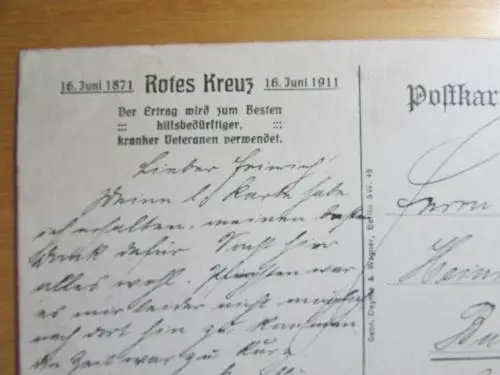 16. Juni 1871 Rotes Kreuz 16. Juni 1911
Der Ertrag wird zum Besten
::: hilfsbedürftiger, :::
kranker Veteranen verwendet.
Postkar
Lieber Heinrich!
Deine l. Karte habe
ich erhalten, meinen besten
Dank dafür. Sonst hier
alles wohl. Pfingsten war
es mir leider nicht möglich
nach dort hin zu kommen
die Zeit war zu kurz
Herrn
Hein
Gebr. Dietrich & Wagner, Berlin S.W. 48